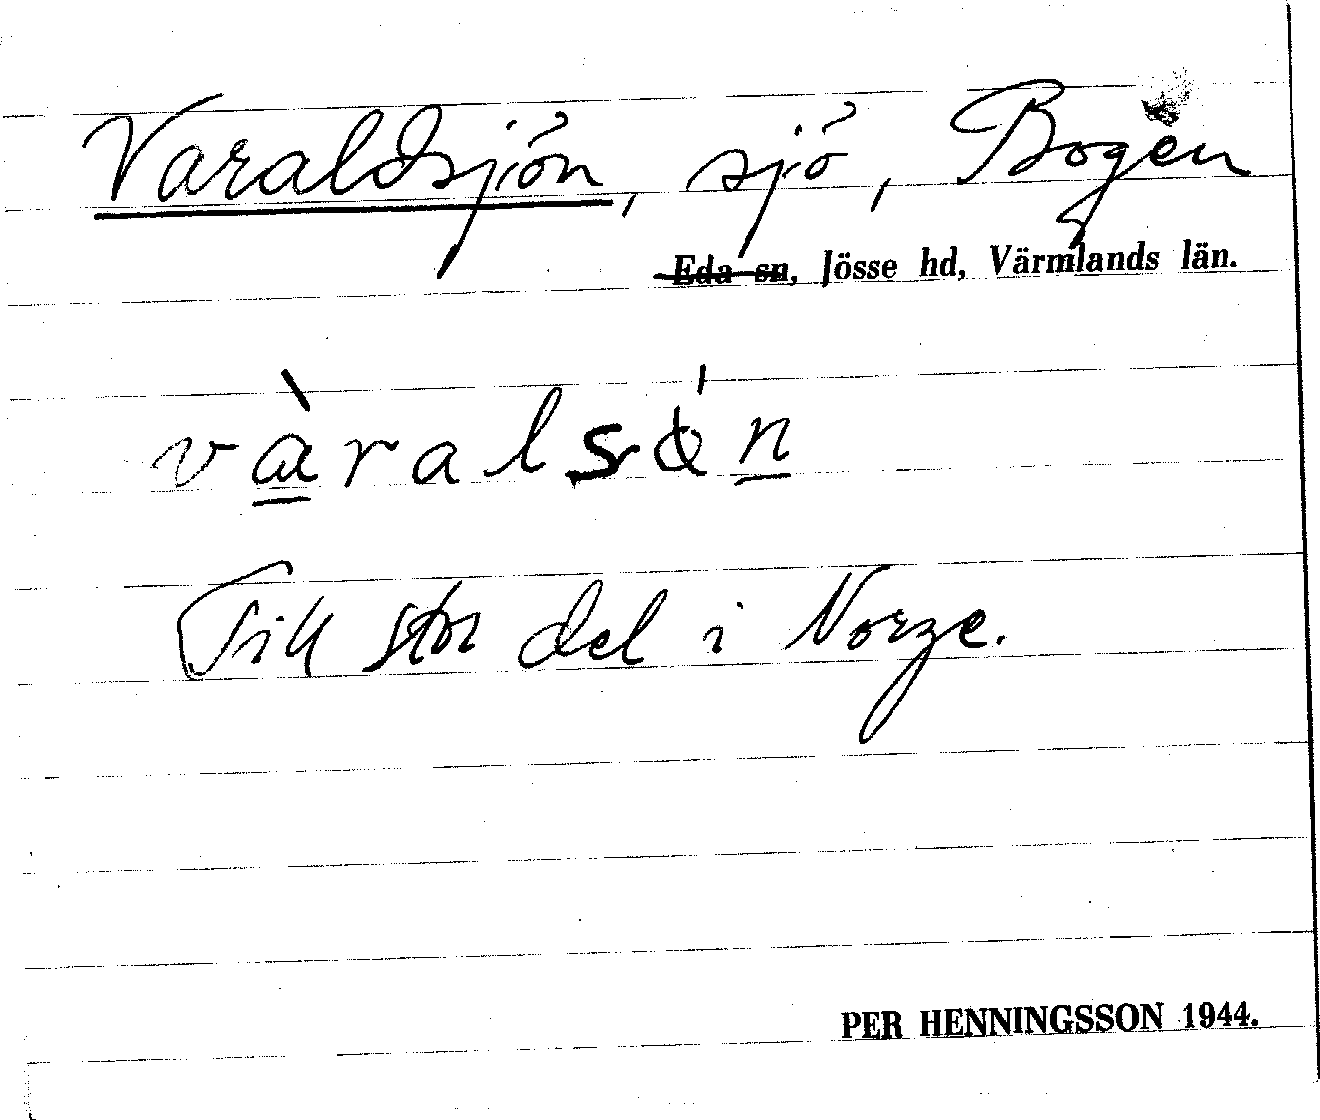 Varaldsjön, sjö, Bogen
Eda sn, Jösse hd, Värmlands län.
vàralsø̍n
Till stor del i Norge.
PER HENNINGSSON 1944.